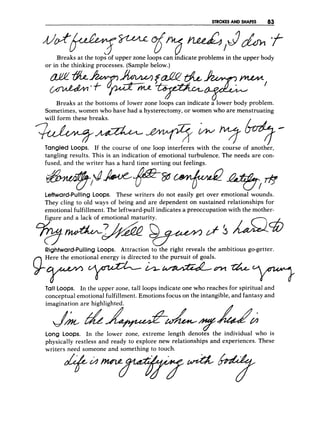 STROKES AND SHAPES 83
Not feeling sure of my needs, I don't
Breaks at the tops of upper zone loops can indicate problems in the upper body
or in the thinking processes. (Sample below.)
all the king's horses & all the king's men,
couldn't put me together again
Breaks at the bottoms of lower zone loops can indicate a lower body problem.
Sometimes, women who have had a hysterectomy, or women who are menstruating
will form these breaks.
Feeling rather empty in my body -
Tangled Loops. If the course of one loop interferes with the course of another,
tangling results. This is an indication of emotional turbulence. The needs are con-
fused, and the writer has a hard time sorting out feelings.
Honestly, I have felt so confused lately, 
Leftward-Pulling Loops. These writers do not easily get over emotional wounds.
They cling to old ways of being and are dependent on sustained relationships for
emotional fulfillment. The leftward-pull indicates a preoccupation with the mother-
figure and a lack of emotional maturity.
My mother? Well I guess it's hard to
Rightward-Pulling Loops. Attraction to the right reveals the ambitious go-getter.
Here the emotional energy is directed to the pursuit of goals.
I guess youth is wasted on the young
Tall Loops. In the upper zone, tall loops indicate one who reaches for spiritual and
conceptual emotional fulfillment. Emotions focus on the intangible, and fantasy and
imagination are highlighted.
I'm the happiest when my head is
Long Loops. In the lower zone, extreme length denotes the individual who is
physically restless and ready to explore new relationships and experiences. These
writers need someone and something to touch.
life is more gratifying with bodily